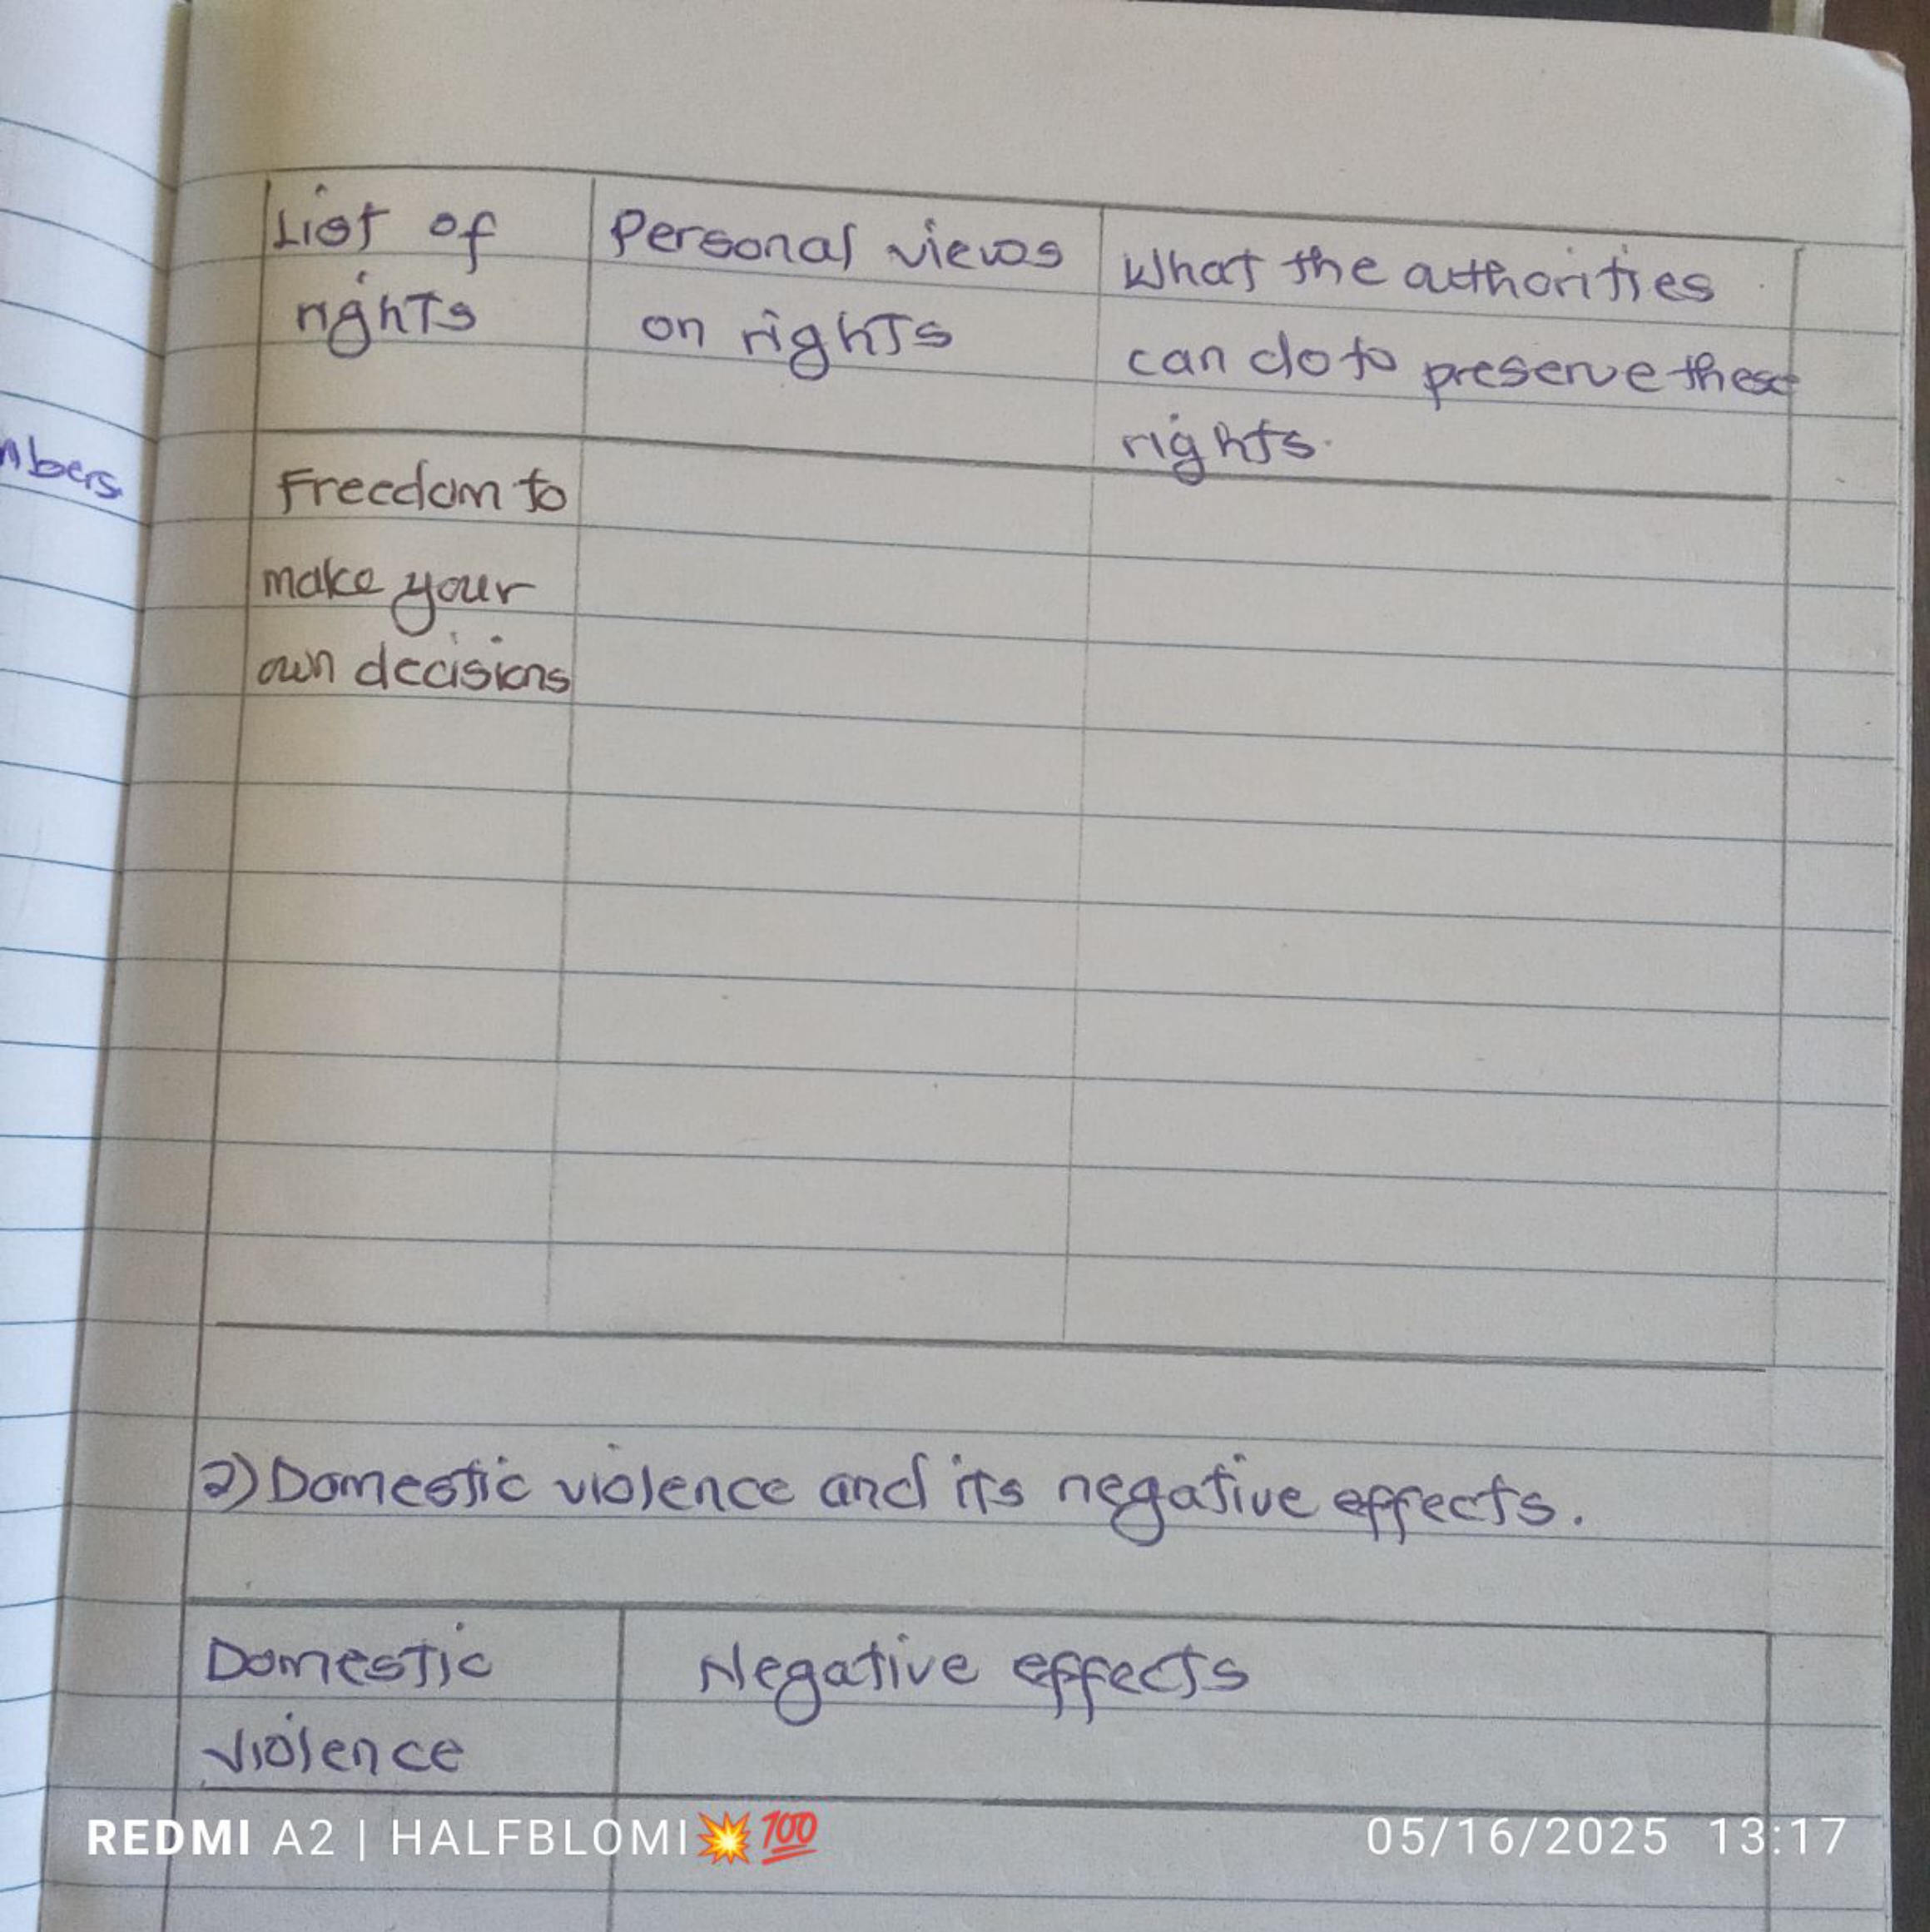 List of
rights
Personal views
on rights
What the authorities
can do to preserve these
rights.
Freedom to
make your
own decisions
2) Domestic violence and its negative effects.
Domestic
violence
Negative effects
REDMI A2 | HALFBLOMI💥💯
05/16/2025 13:17